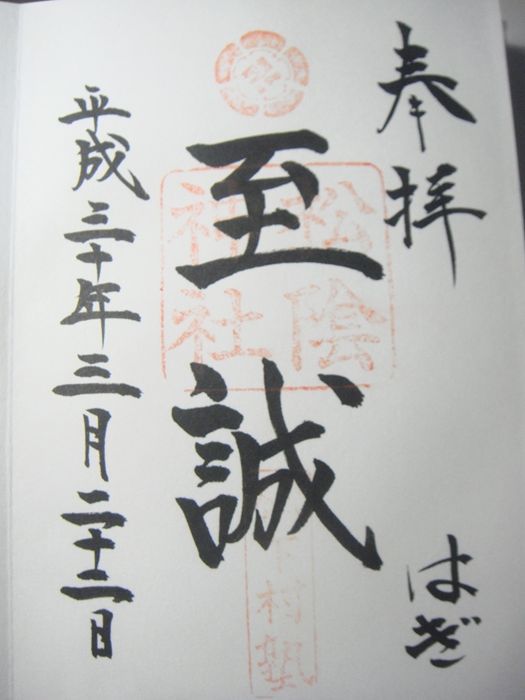 奉拝
はぎ
至誠
松陰
神社
松下村塾
平成三十年三月二十二日